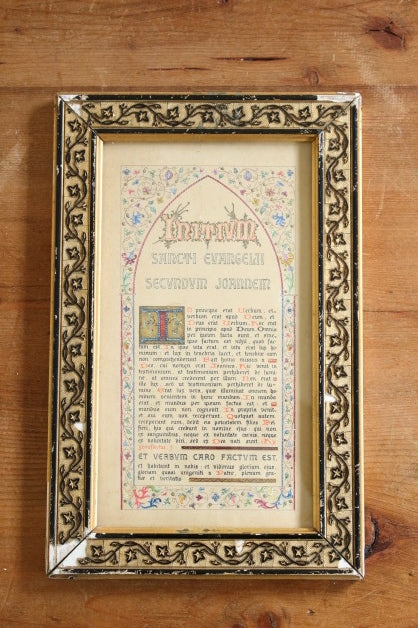 INITIUM
SANCTI EVANGELII
SECUNDUM JOANNEM
In principio erat Verbum, et
verbum erat apud Deum, et
Deus erat Verbum. Hoc erat
in principio apud Deum. Omnia
per ipsum facta sunt: et sine
ipso factum est nihil quod fac-
tum est. In ipso vita erat, et vita erat lux ho-
minum: et lux in tenebris lucet, et tenebrae eam
non comprehenderunt. Fuit homo missus a
Deo, cui nomen erat Joannes. Hic venit in
testimonium, ut testimonium perhiberet de lumi-
ne, ut omnes crederent per illum. Non erat
ille lux, sed ut testimonium perhiberet de lu-
mine. Erat lux vera, quae illuminat omnem ho-
minem venientem in hunc mundum. In mundo
erat, et mundus per ipsum factus est, et
mundus eum non cognovit. In propria venit,
et sui eum non receperunt. Quotquot autem
receperunt eum, dedit eis potestatem filios Dei
fieri, his qui credunt in nomine ejus: qui non
ex sanguinibus, neque ex voluntate carnis, neque
ex voluntate viri, sed ex Deo nati sunt.
ET VERBUM CARO FACTUM EST,
et habitavit in nobis: et vidimus gloriam ejus,
gloriam quasi unigeniti a Patre, plenum gra-
tiae et veritatis